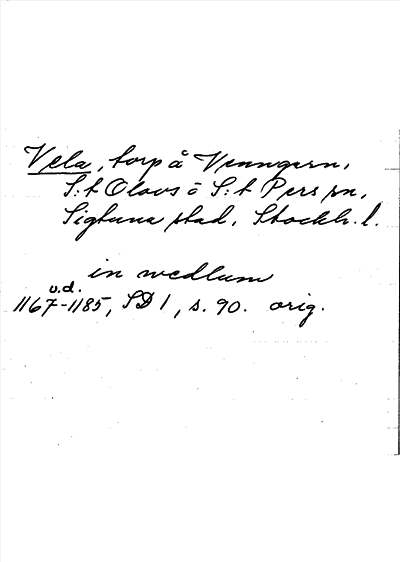 Vela, torp å Venngarn,
S:t Olovs o S:t Pers sn,
Sigtuna stad, Stockh. l.
in wedlum
u.d.
1167-1185, SD 1, s. 90. orig.